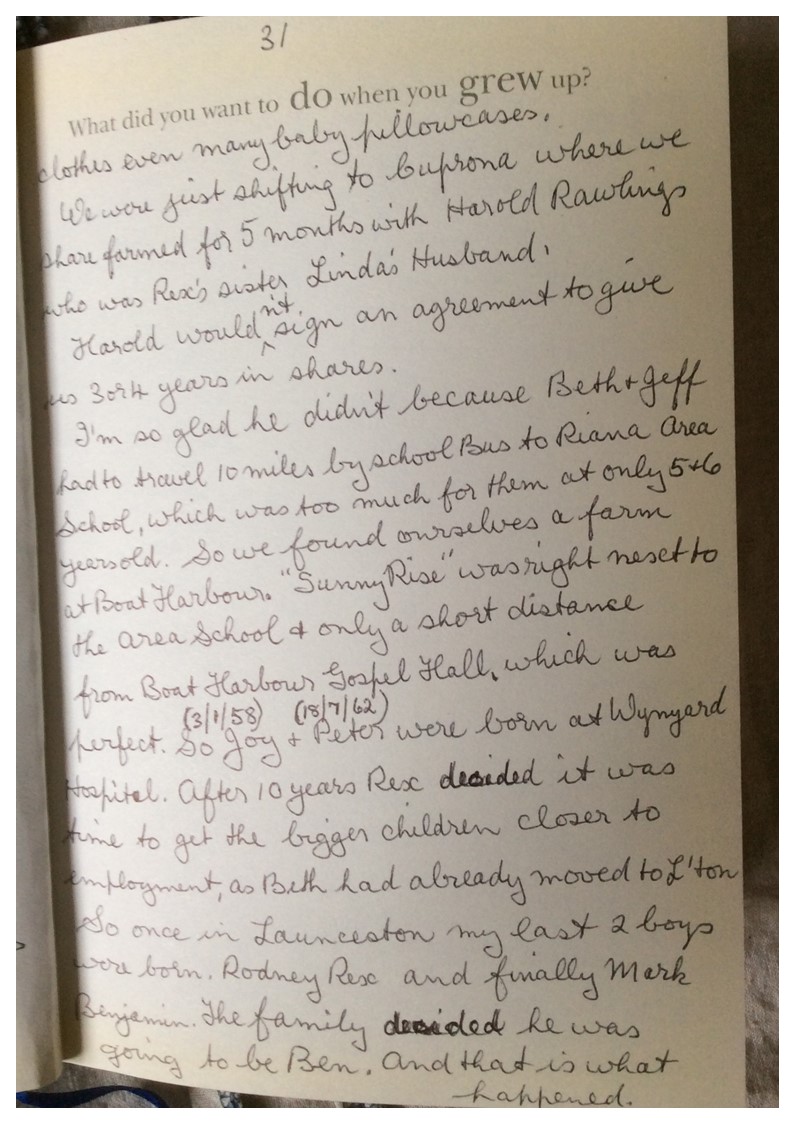 31
What did you want to do when you grew up?
clothes even many baby pillowcases.
We were just shifting to Cuprona where we
share farmed for 5 months with Harold Rawlings
who was Rex's sister Linda's Husband.
Harold wouldn't sign an agreement to give
us 3 or 4 years in shares.
I'm so glad he didn't because Beth + Jeff
had to travel 10 miles by school Bus to Riana Area
School, which was too much for them at only 5+6
years old. So we found ourselves a farm
at Boat Harbour. "Sunny Rise" was right next to
the Area School & only a short distance
from Boat Harbour Gospel Hall, which was
(3/1/58) (18/7/62)
perfect. So Joy + Peter were born at Wynyard
Hospital. After 10 years Rex decided it was
time to get the bigger children closer to
employment, as Beth had already moved to L'ton
So once in Launceston my last 2 boys
were born. Rodney Rex and finally Mark
Benjamin. The family decided he was
going to be Ben. And that is what
happened.